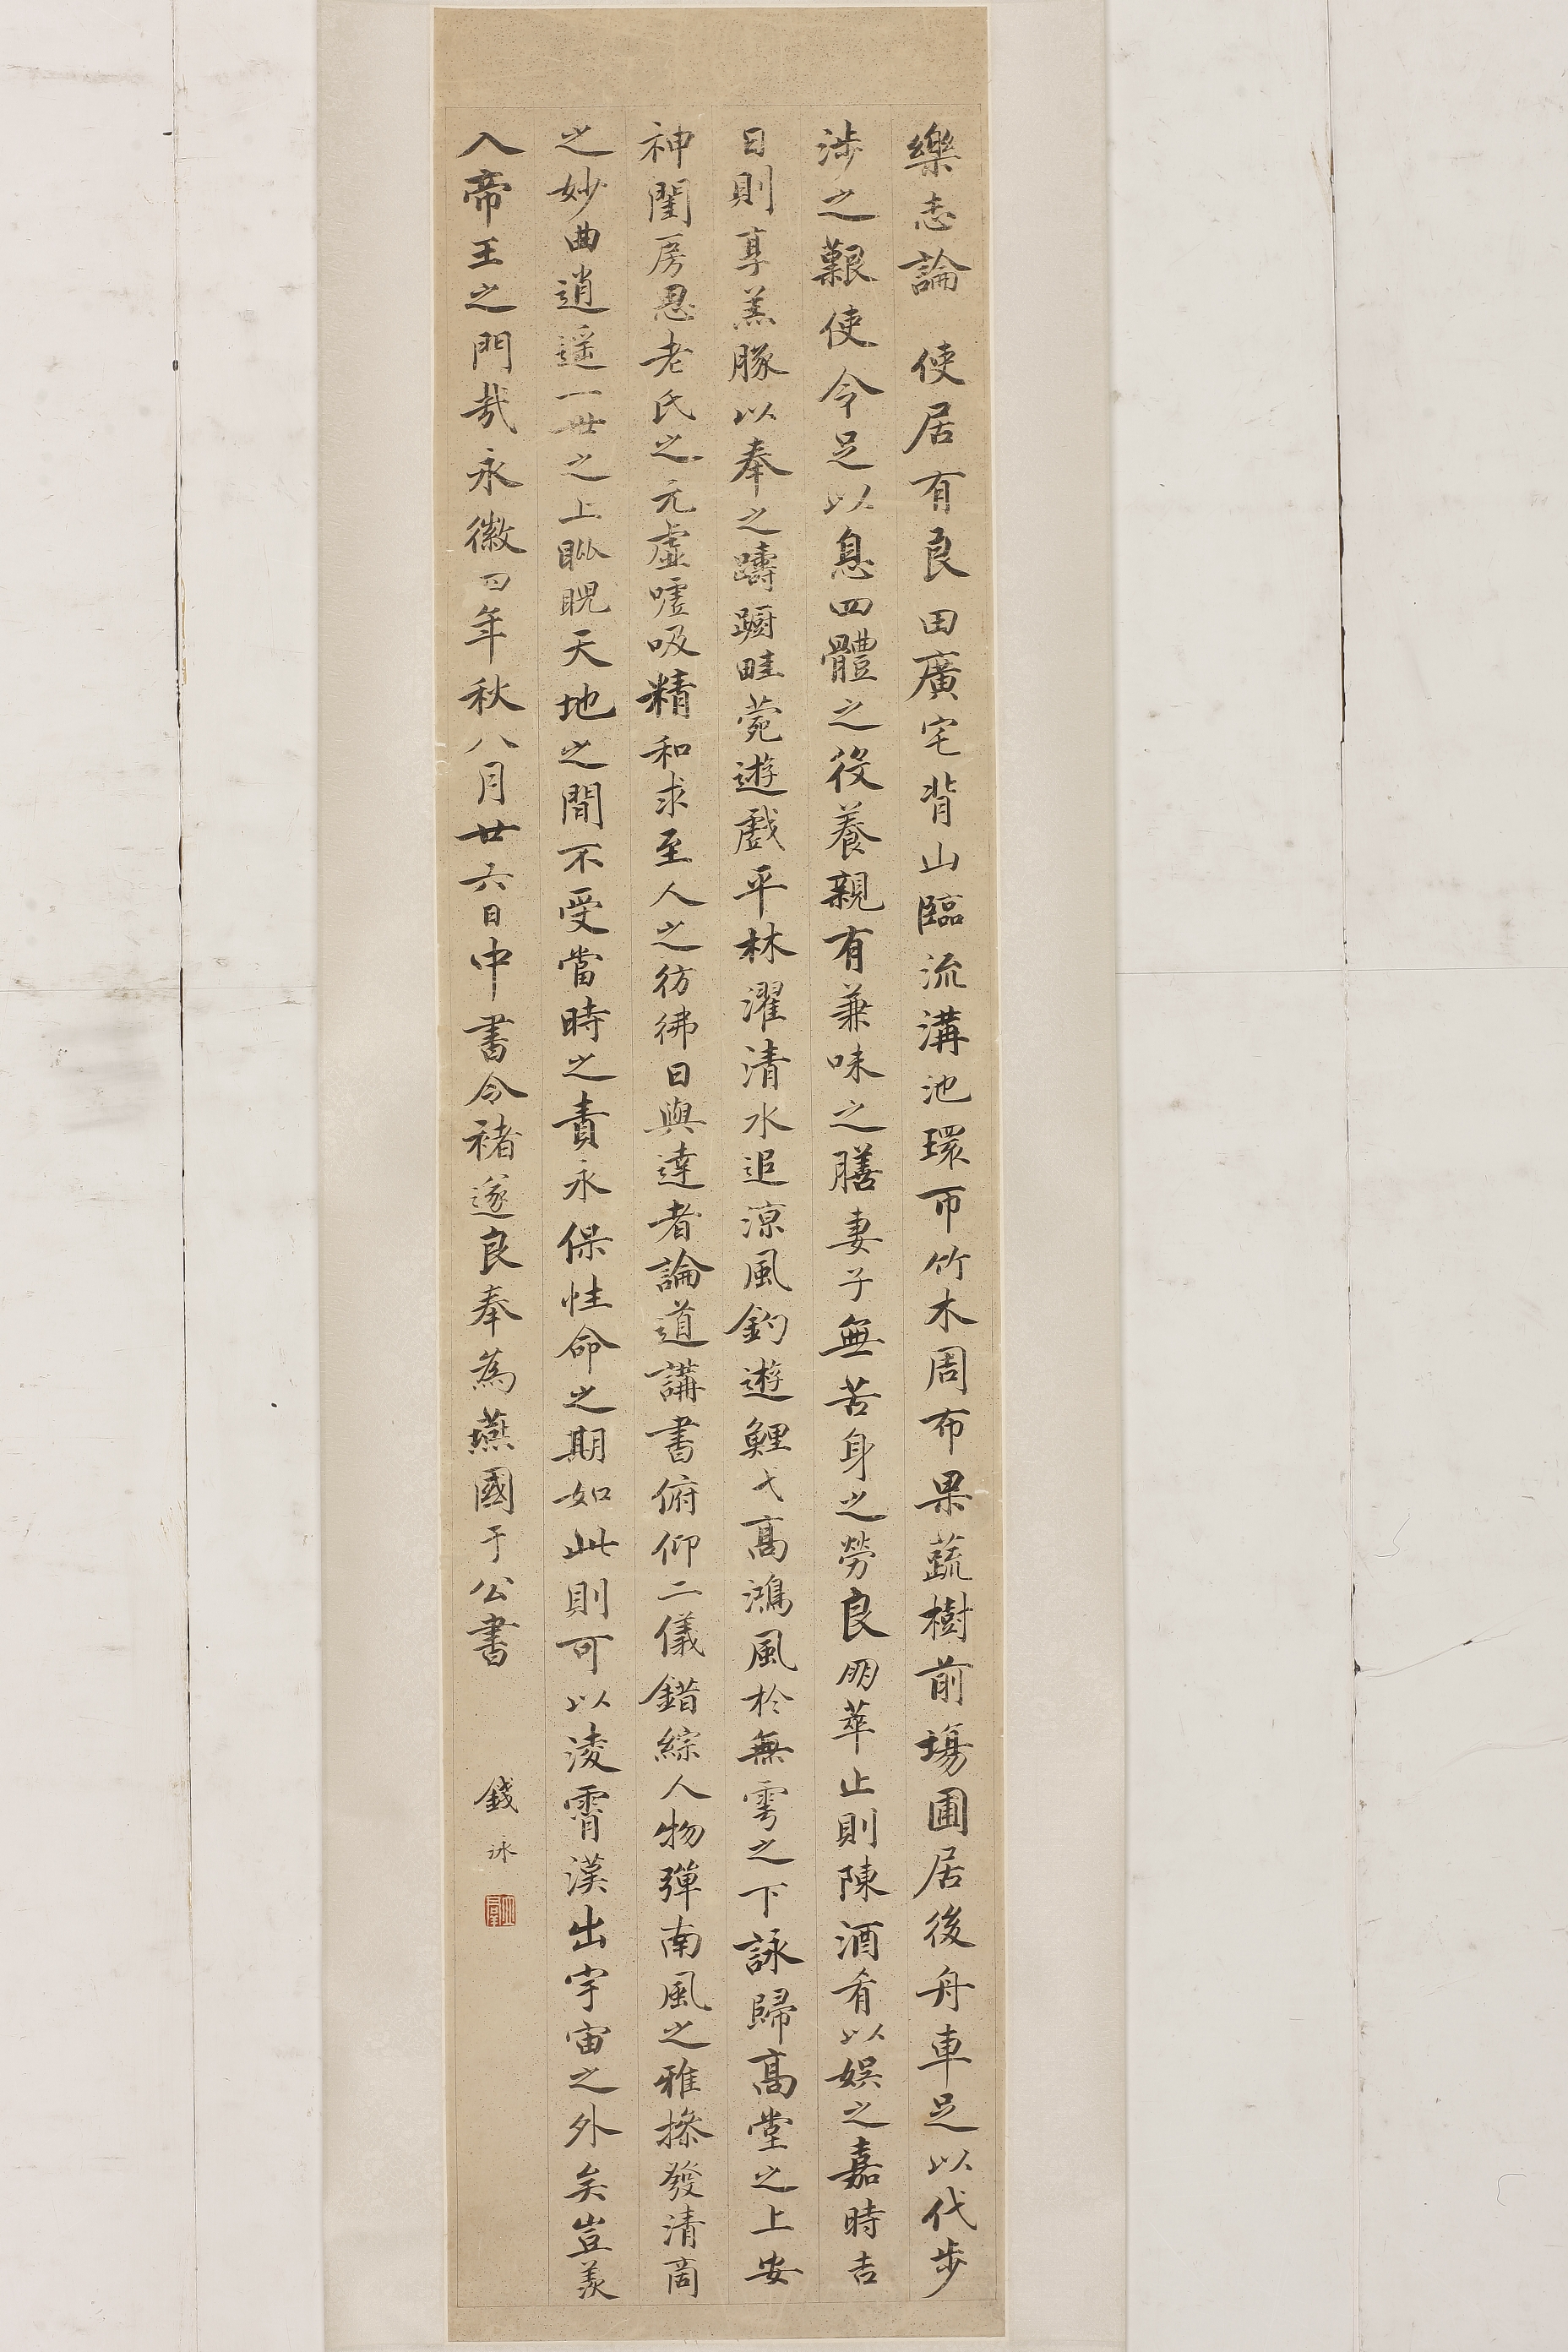 樂志論 使居有良田廣宅背山臨流溝池環帀竹木周布果蔬樹前塲圃居後舟車足以代步
涉之艱使令足以息四體之役養親有兼味之膳妻子無苦身之勞良朋萃止則陳酒肴以娛之嘉時吉
日則享羔豚以奉之躊躕畦菀遊戲平林濯清水追涼風釣遊鯉弋高鴻風於無雩之下詠歸高堂之上安
神閨房思老氏之元虛嘘吸精和求至人之彷彿日與達者論道講書俯仰二儀錯綜人物彈南風之雅操發清商
之妙曲逍遥一世之上睥睨天地之間不受當時之責永保性命之期如此則可以淩霄漢出宇宙之外矣豈羨
入帝王之門哉永徽四年秋八月廿六日中書令褚遂良奉為燕國于公書
錢泳